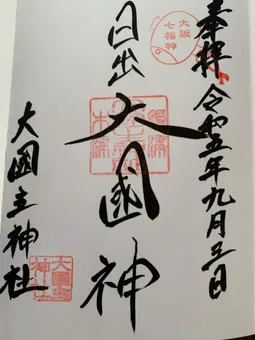 奉拝
令和五年九月三日
大阪
七福神
日出大國神
大國主神社